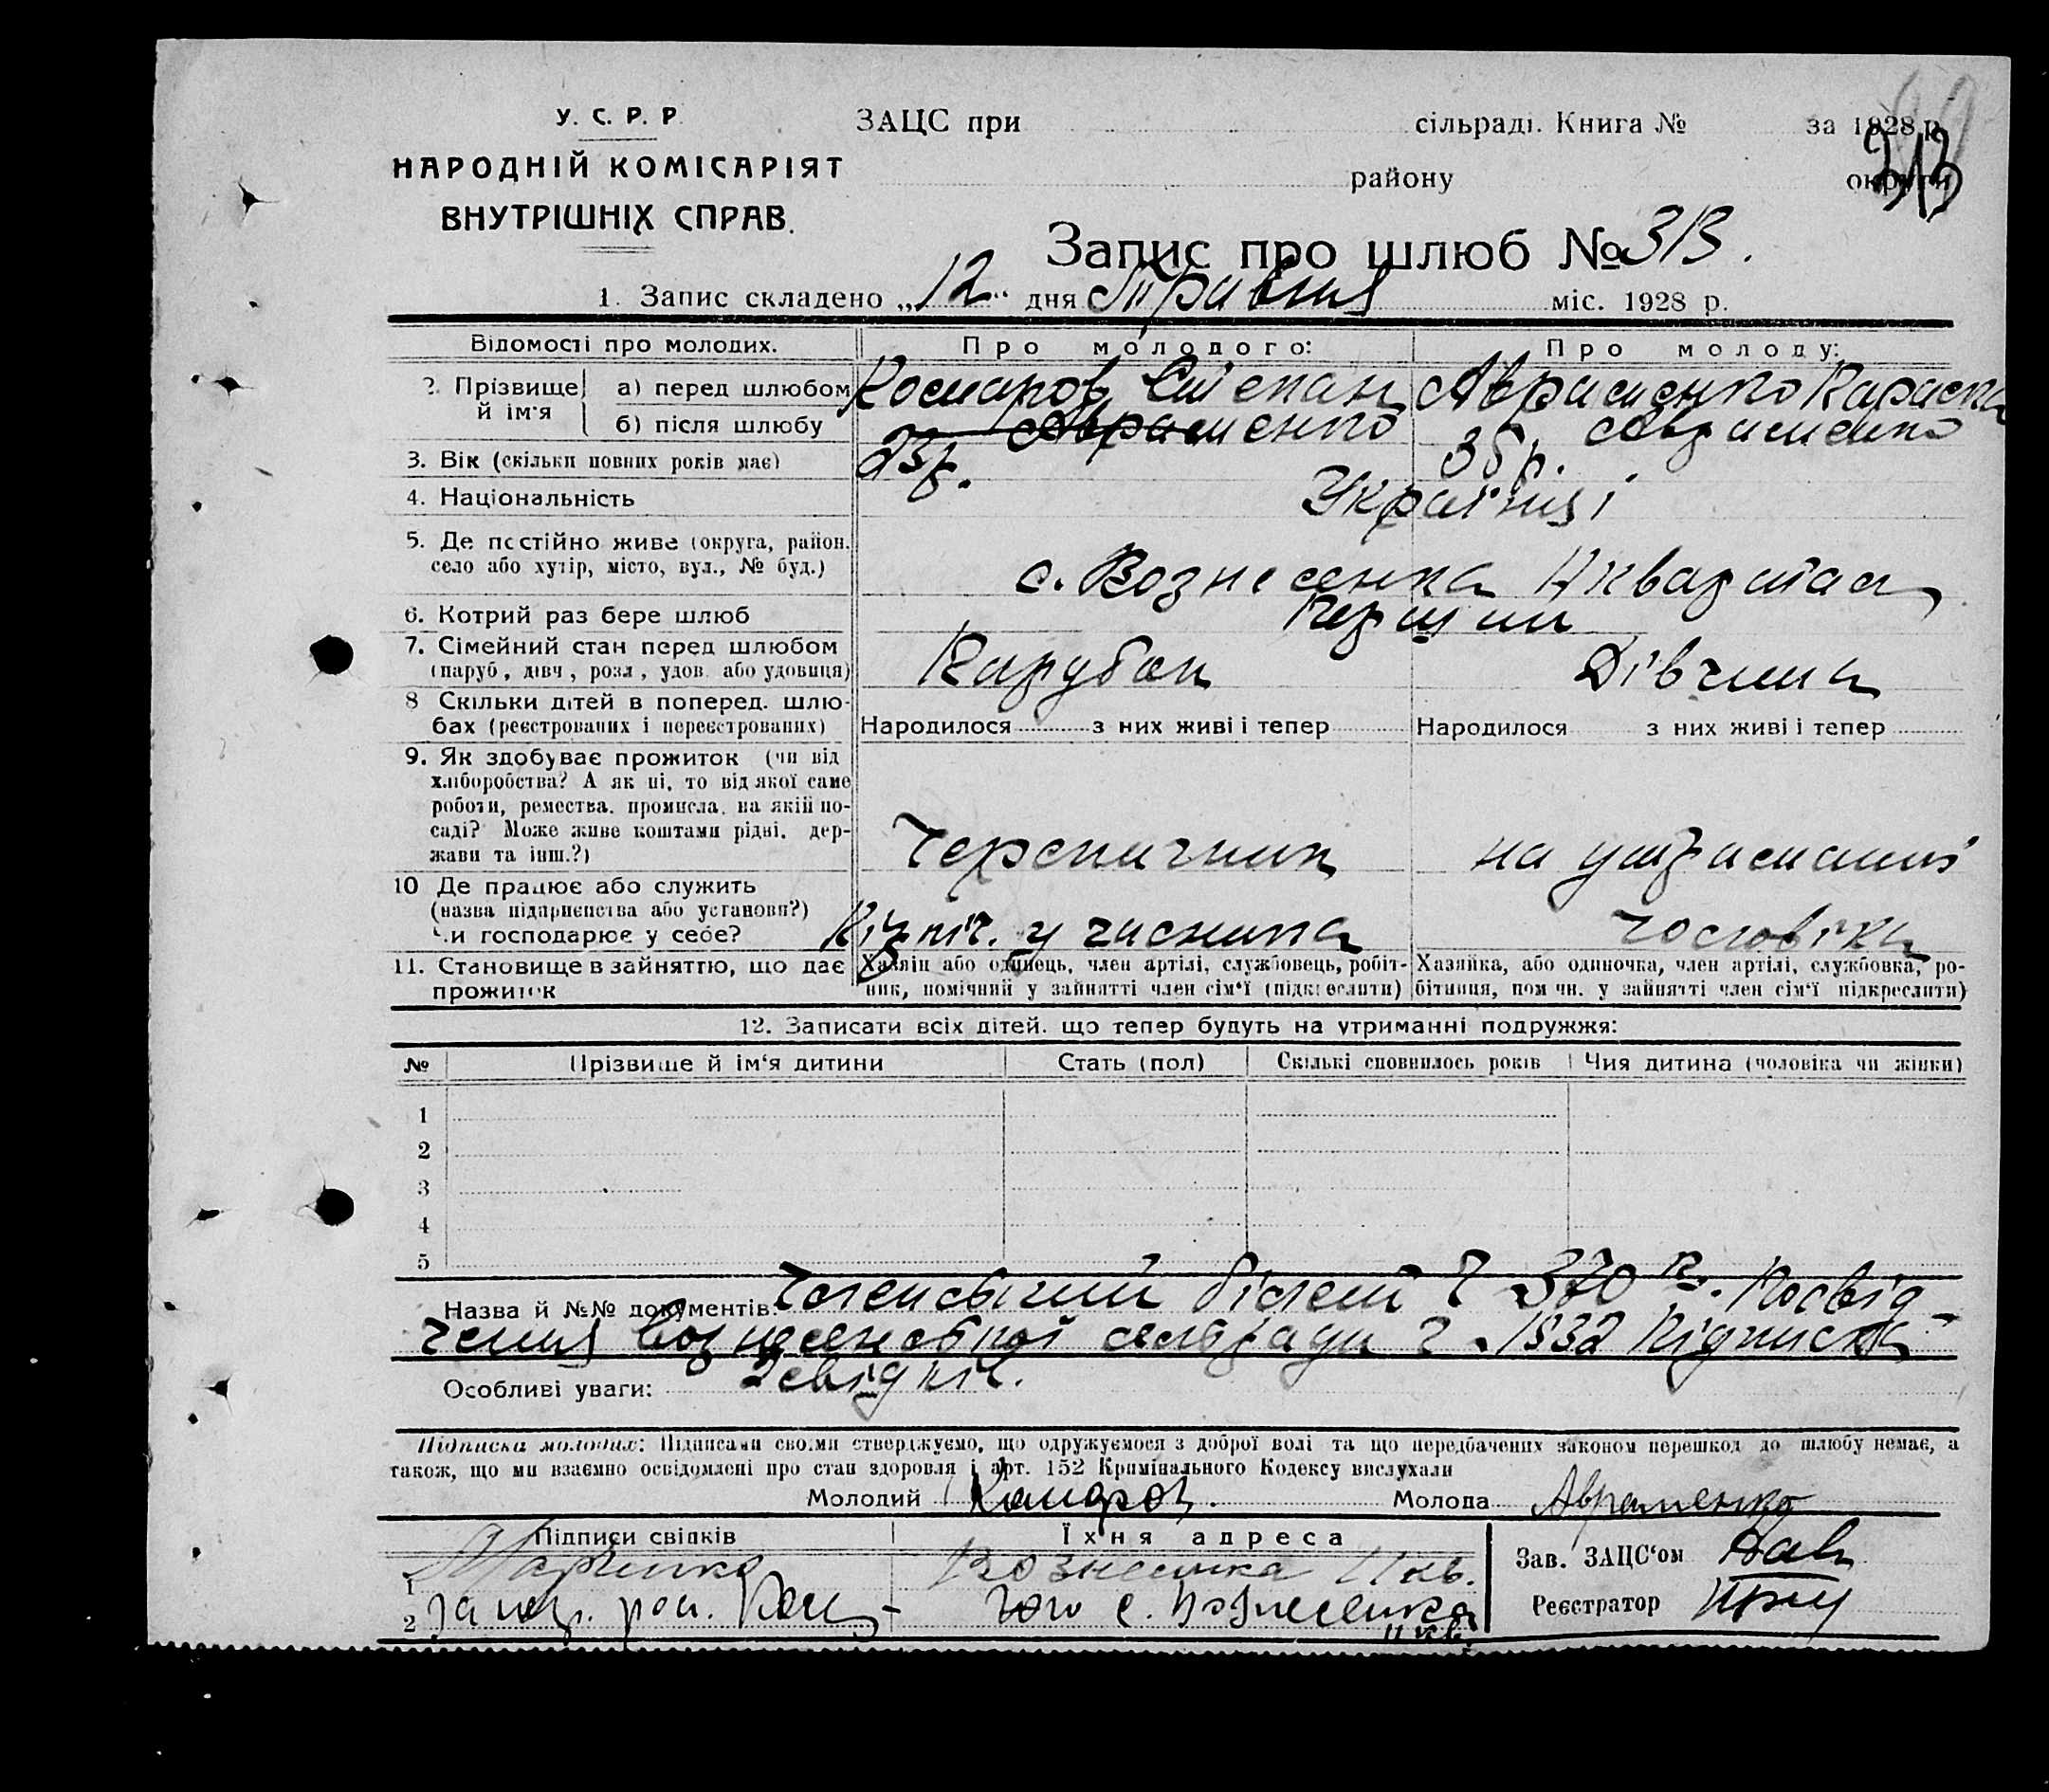 У. С. Р. Р.
НАРОДНІЙ КОМІСАРІЯТ
ВНУТРІШНІХ СПРАВ.
ЗАЦС при сільраді. Книга № за 1928 р.
району округи
313
Запис про шлюб № 313.
1. Запис складено „12“ дня Травня міс. 1928 р.
Відомості про молодих. Про молодого: Про молоду:
2. Прізвище й ім'я а) перед шлюбом Степан Авраменко
б) після шлюбу Авраменко Авраменко
3. Вік (скільки повних років має) 23 р. 35 р.
4. Національність Українці
5. Де постійно живе (округа, район,
село або хутір, місто, вул., № буд.) с. Вознесенка
6. Котрий раз бере шлюб Перший
7. Сімейний стан перед шлюбом
(паруб, дівч, розл, удов. або удовиця) Парубок Дівчина
8 Скільки дітей в поперед. шлю-
бах (реєстрованих і нереєстрованих) Народилося з них живі і тепер Народилося з них живі і тепер
9. Як здобуває прожиток (чи від
хліборобства? А як ні, то від якої саме
роботи, ремества, промисла, на якій по-
саді? Може живе коштами рідні, дер-
жави та інш.?) Черепичник на утриманні
10 Де працює або служить
(назва підприємства або установи?)
чи господарює у себе? у часника чоловіка
11. Становище в зайняттю, що дає
прожиток
Хазяїн або одинець, член артілі, службовець, робіт-
ник, помічний у зайнятті член сім'ї (підкреслити)
Хазяйка, або одиночка, член артілі, службовка, ро-
бітниця, помічн. у зайнятті член сім'ї підкреслити)
12. Записати всіх дітей, що тепер будуть на утриманні подружжя:
№ Прізвище й ім'я дитини Стать (пол) Скількі сповнилось років Чия дитина (чоловіка чи жінки)
1
2
3
4
5
Назва й №№ документів: Членський білет Ч 370 Посвід-
чення Вознесенської сельради ч. 1532 Підписка
Особливі уваги:
Підписка молодих: Підписами своїми стверджуємо, що одружуємося з доброї волі та що передбачених законом перешкод до шлюбу немає, а
також, що ми взаємно освідомлені про стан здоровля і арт. 152 Кримінального Кодексу вислухали
Молодий Молода Авраменко
Підписи свідків Їхня адреса
1 Вознесенка
2 с. Вознесенка
Зав. ЗАЦС'ом
Реєстратор